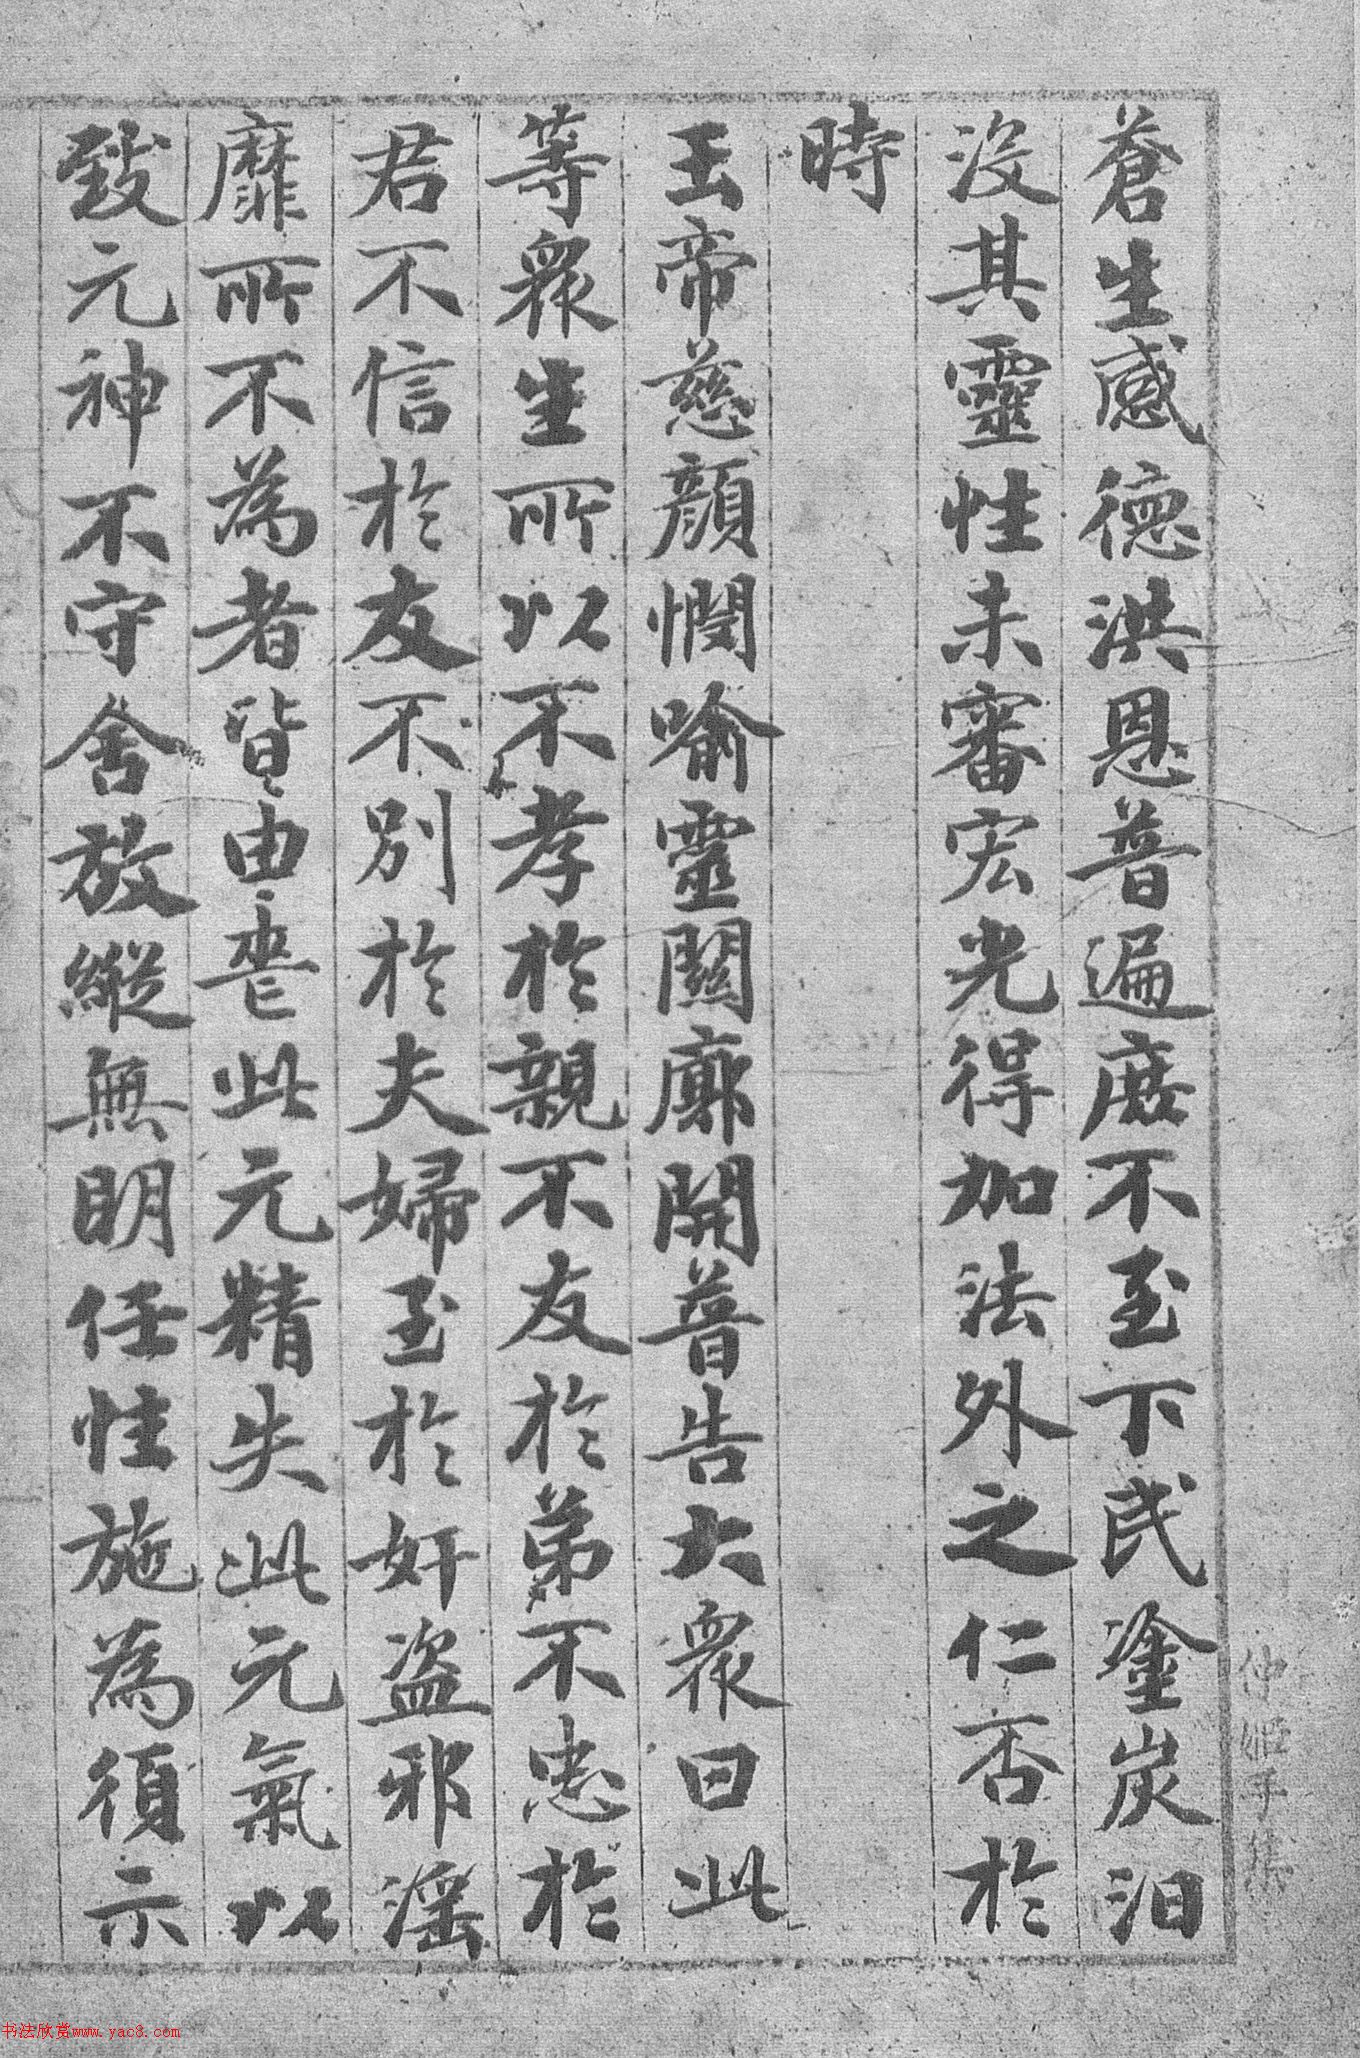 蒼生感德洪恩普遍庶不至下民塗炭汩
没其靈性未審宏光得加法外之仁否於
時
玉帝慈顏憫喻靈關廓開普告大衆曰此
等衆生所以不孝於親不友於弟不忠於
君不信於友不別於夫婦至於奸盗邪淫
靡所不為者皆由喪此元精失此元氣以
致元神不守舍放縱無明任性施為須示
仲姬手
书法欣赏www.yac8.com